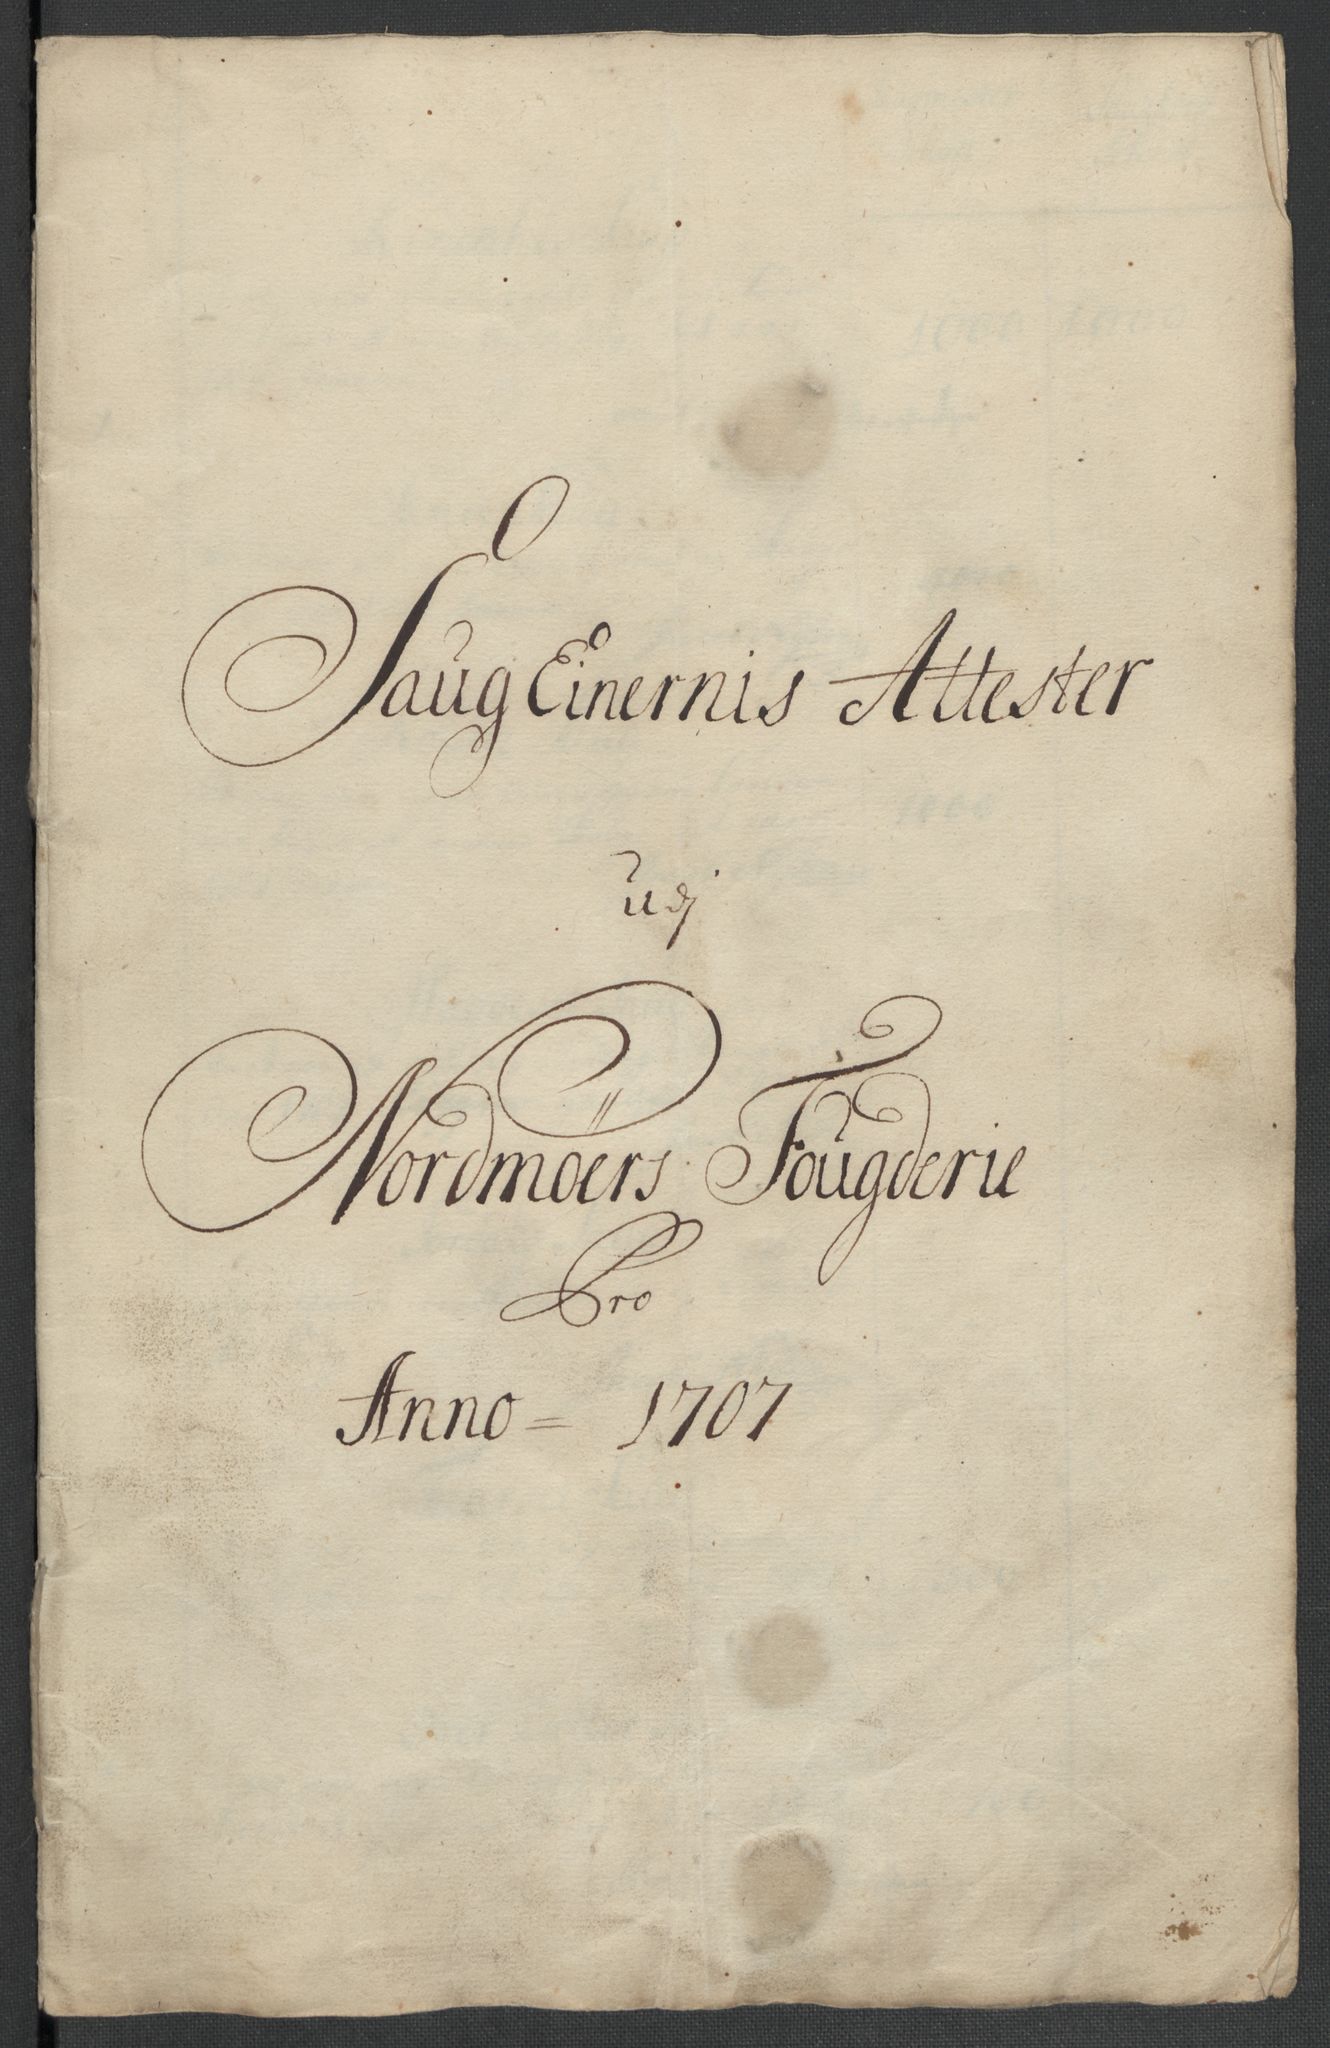 Saug Einernis Attester
udj
Nordmöers Fougderie
Pro
Anno = 1707